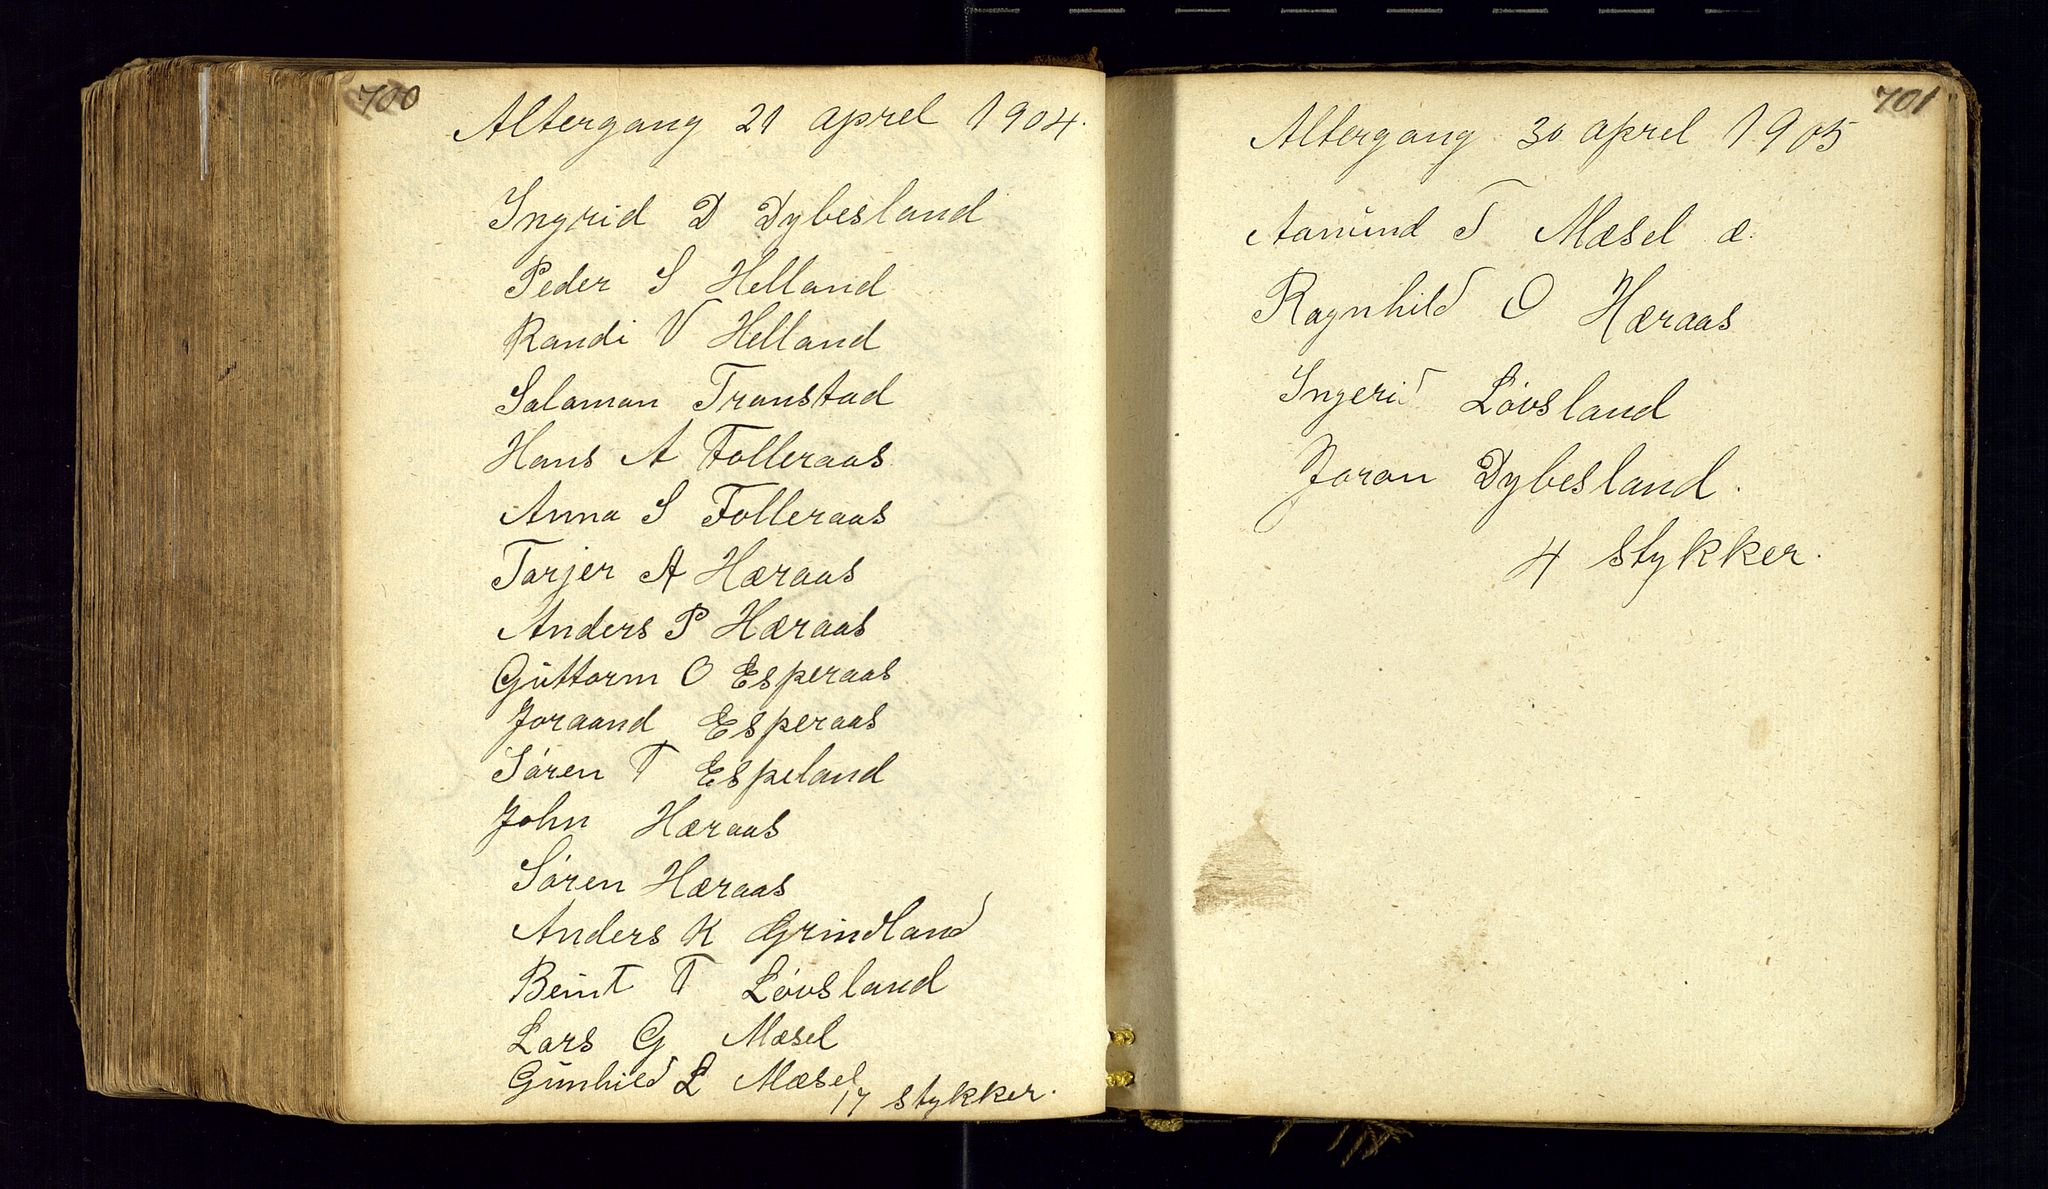 700
Altergang 21 aprel 1904.
Ingrid D Dybesland
Peder S Helland
Randi V Helland
Salamon Tronstad
Hans A Folleraas
Anna S Folleraas
Tarjer A Hæraas
Anders P Hæraas
Guttorm O Esperaas
Joraand Esperaas
Søren T Espeland
John Hæraas
Søren Hæraas
Anders K Grindland
Beint T Løvsland
Lars G Mæsel
Gunhild L Mæsel
17 stykker.
701
Altergang 30 aprel 1905
Aamund T Mæsel æ.
Ragnhild O Hæraas
Ingerid Løvsland
Joron Dybesland.
4 stykker.